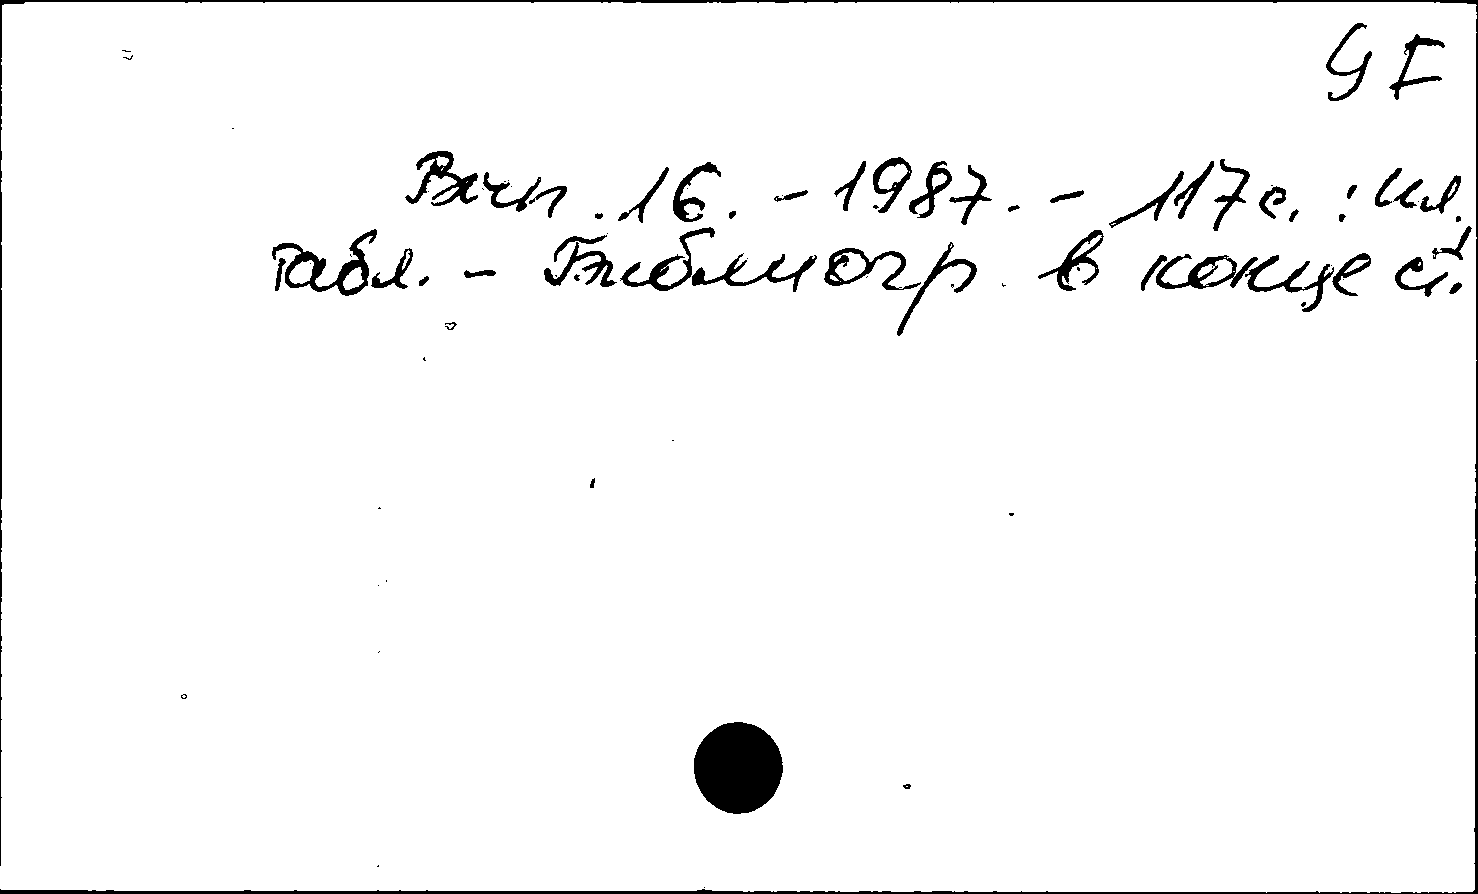 Вып. 16. - 1987. - 117 с. : ил.,
табл. - Библиогр. в конце ст.